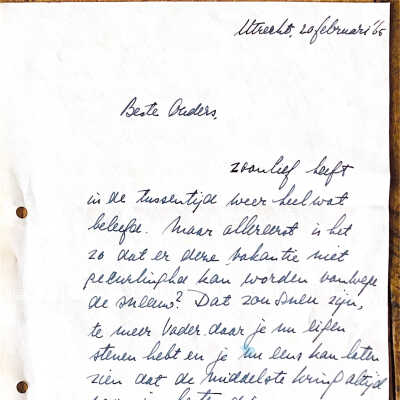 Utrecht, 20 februari '65
Beste Ouders,
zoonlief heeft
in de tussentijd weer heel wat
beleefd. Maar allereerst is het
zo dat er deze vakantie niet
gecurlinghd kan worden vanwege
de sneeuw? Dat zou snert zijn,
te meer Vader daar je nu eigen
stenen hebt en je nu eens kan laten
zien dat de middelste kring altijd